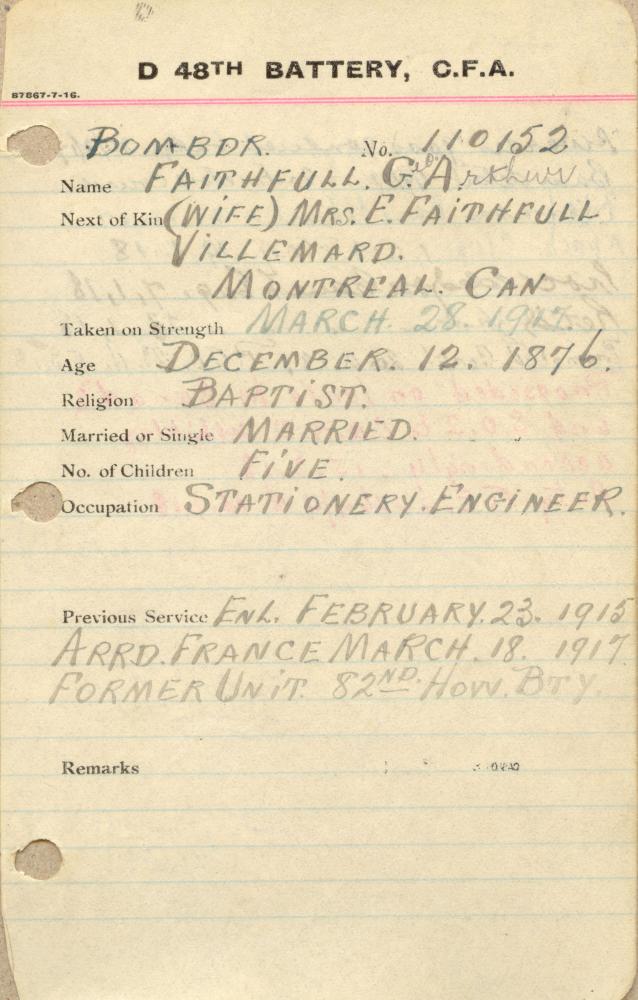 D 48TH BATTERY, C.F.A.
87867-7-16.
BOMBDR. No. 110152
Name FAITHFULL. Geo. Arthur
Next of Kin (WIFE) MRS. E. FAITHFULL
VILLEMARD.
MONTREAL. CAN
Taken on Strength MARCH. 28. 1917.
Age DECEMBER. 12. 1876.
Religion BAPTIST.
Married or Single MARRIED.
No. of Children FIVE.
Occupation STATIONERY. ENGINEER.
Previous Service ENL. FEBRUARY. 23. 1915
ARRD. FRANCE MARCH. 18. 1917
FORMER UNIT. 82ND. HOW. BTY.
Remarks